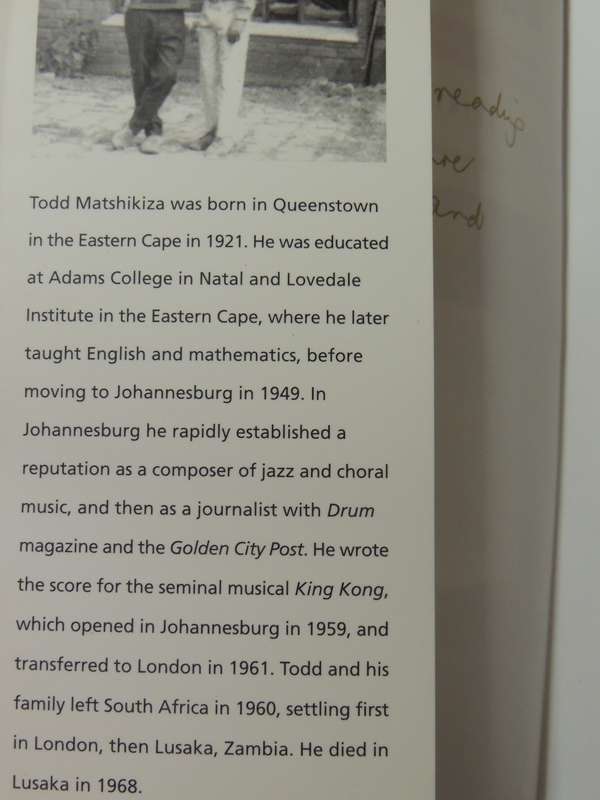 Todd Matshikiza was born in Queenstown
in the Eastern Cape in 1921. He was educated
at Adams College in Natal and Lovedale
Institute in the Eastern Cape, where he later
taught English and mathematics, before
moving to Johannesburg in 1949. In
Johannesburg he rapidly established a
reputation as a composer of jazz and choral
music, and then as a journalist with Drum
magazine and the Golden City Post. He wrote
the score for the seminal musical King Kong,
which opened in Johannesburg in 1959, and
transferred to London in 1961. Todd and his
family left South Africa in 1960, settling first
in London, then Lusaka, Zambia. He died in
Lusaka in 1968.
and